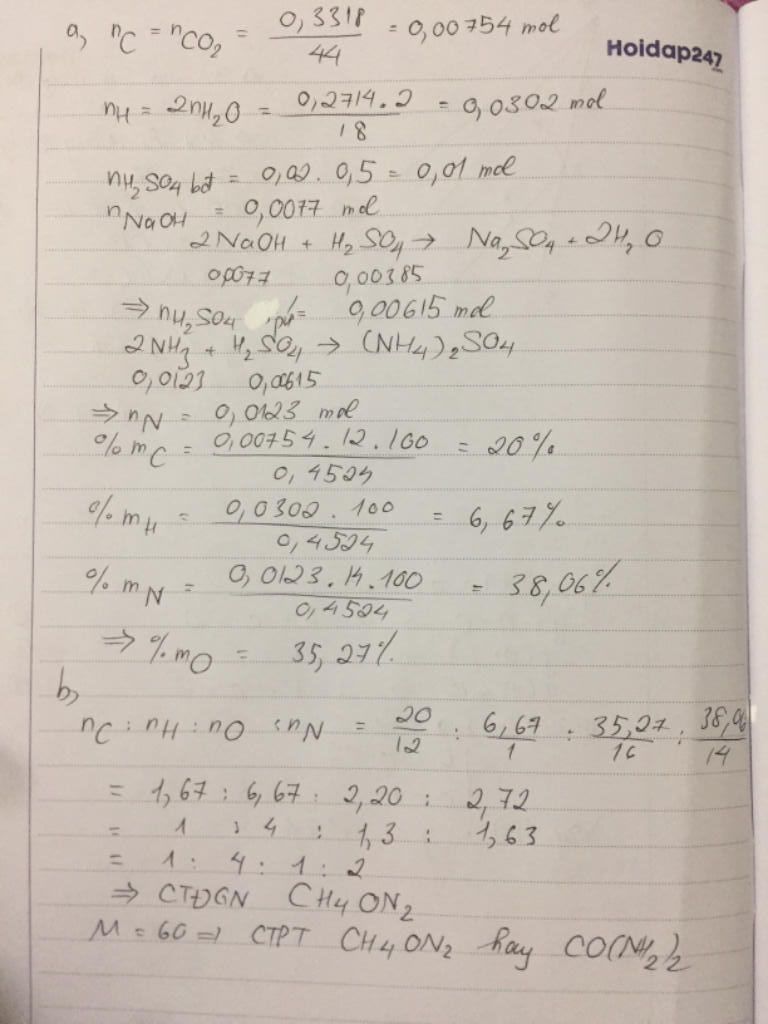 a, nC = nCO2 = 0,3318/44 = 0,00754 mol
Hoidap247
.com
nH = 2nH2O = 0,2714.2/18 = 0,0302 mol
nH2SO4 bđ = 0,02. 0,5 = 0,01 mol
nNaOH = 0,0077 mol
2NaOH + H2SO4 → Na2SO4 + 2H2O
0,0077 0,00385
⇒ nH2SO4 pứ = 0,00615 mol
2NH3 + H2SO4 → (NH4)2SO4
0,0123 0,00615
⇒ nN = 0,0123 mol
% mC = 0,00754.12.100/0,4524 = 20%
% mH = 0,0302.100/0,4524 = 6,67%
% mN = 0,0123.14.100/0,4524 = 38,06%
⇒ % mO = 35,27%
b,
nC : nH : nO : nN = 20/12 : 6,67/1 : 35,27/16 : 38,06/14
= 1,67 : 6,67 : 2,20 : 2,72
= 1 : 4 : 1,3 : 1,63
= 1 : 4 : 1 : 2
⇒ CTĐGN CH4ON2
M = 60 ⇒ CTPT CH4ON2 hay CO(NH2)2